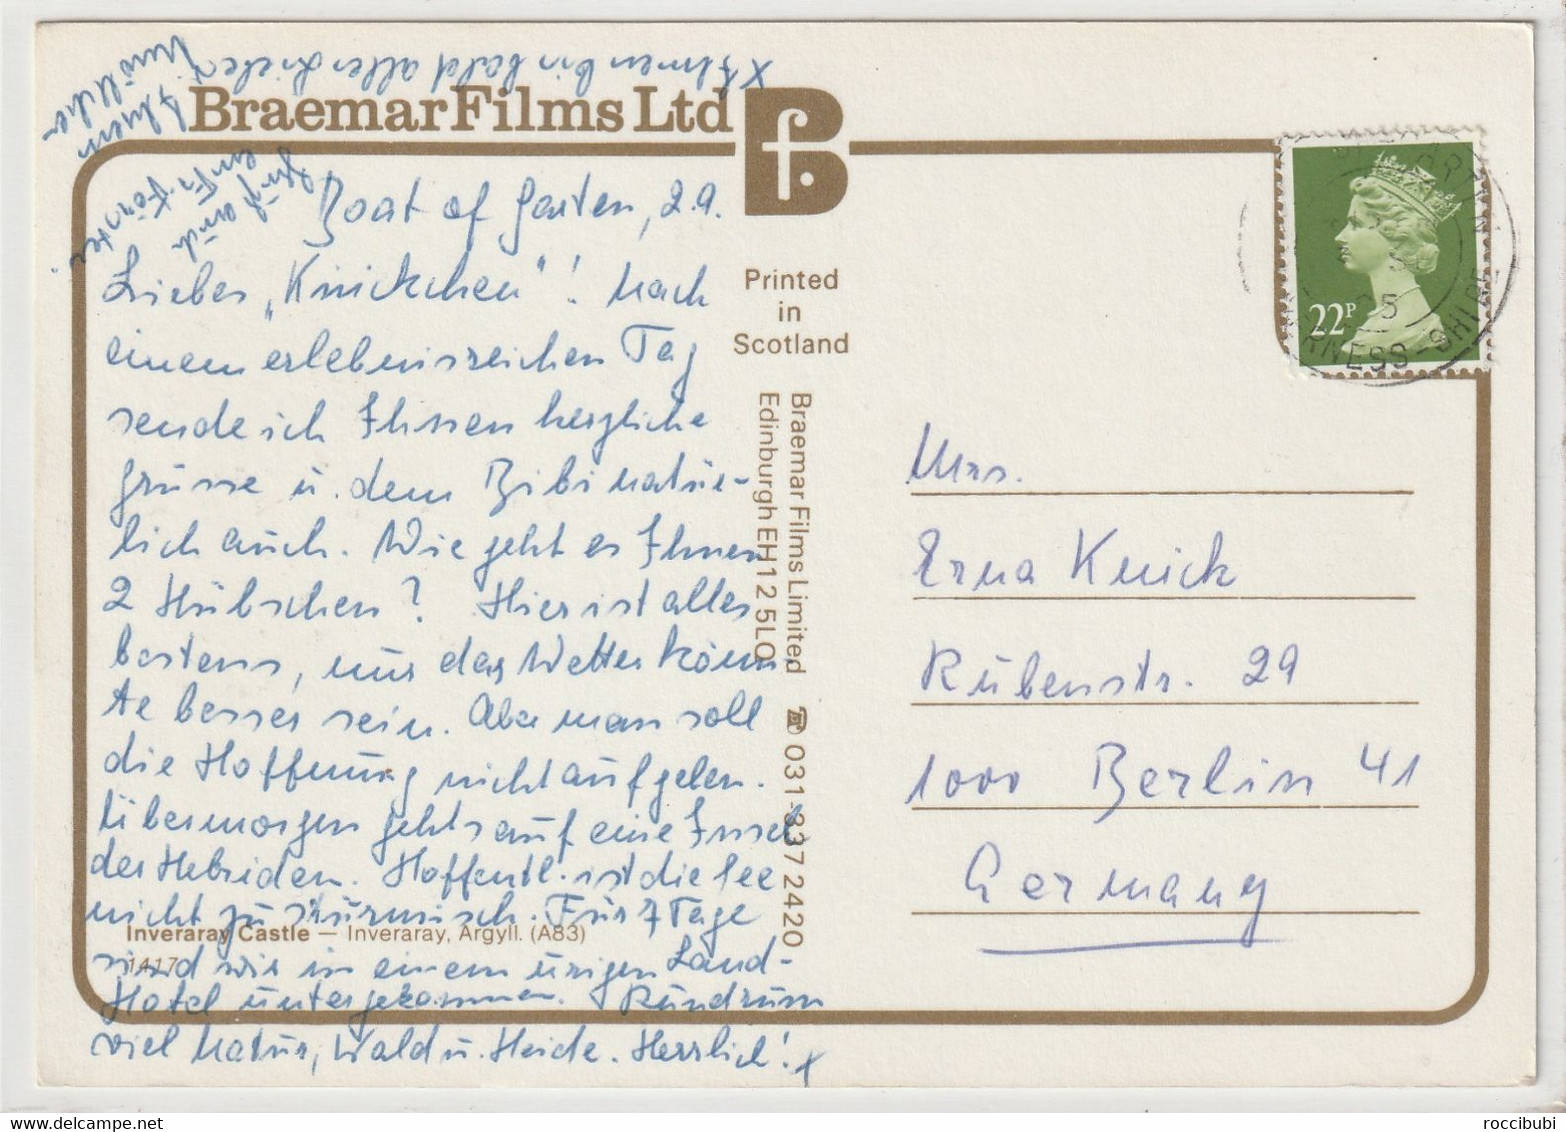 Braemar Films Ltd
Boat of Garten, 2.9.
Liebes „Knickchen"! Nach
einem erlebnisreichen Tag
sende ich Ihnen herzliche
Grüsse u. dem Bibi natür-
lich auch. Wie geht es Ihnen
2 Hübschen? Hier ist alles
bestens, nur das Wetter könn-
te besser sein. Aber man soll
die Hoffnung nicht aufgeben.
Übermorgen gehts auf eine Insel
der Hebriden. Hoffentl. ist die See
nicht zu stürmisch. Für 7 Tage
sind wir in einem urigen Land-
Hotel untergekommen. Rundrum
viel Natur, Wald u. Heide. Herrlich! x
x Ihnen bis bald alles Liebe
Ihre
Gruß auch
an Fr. Förster.
Inveraray Castle — Inveraray, Argyll. (A83)
1417
Printed
in
Scotland
Braemar Films Limited ☎ 031-337 2420
Edinburgh EH12 5LQ
22P
INVERNESS-SHIRE
Mrs.
Erna Knick
Rubenstr. 29
1000 Berlin 41
Germany
roccibubi